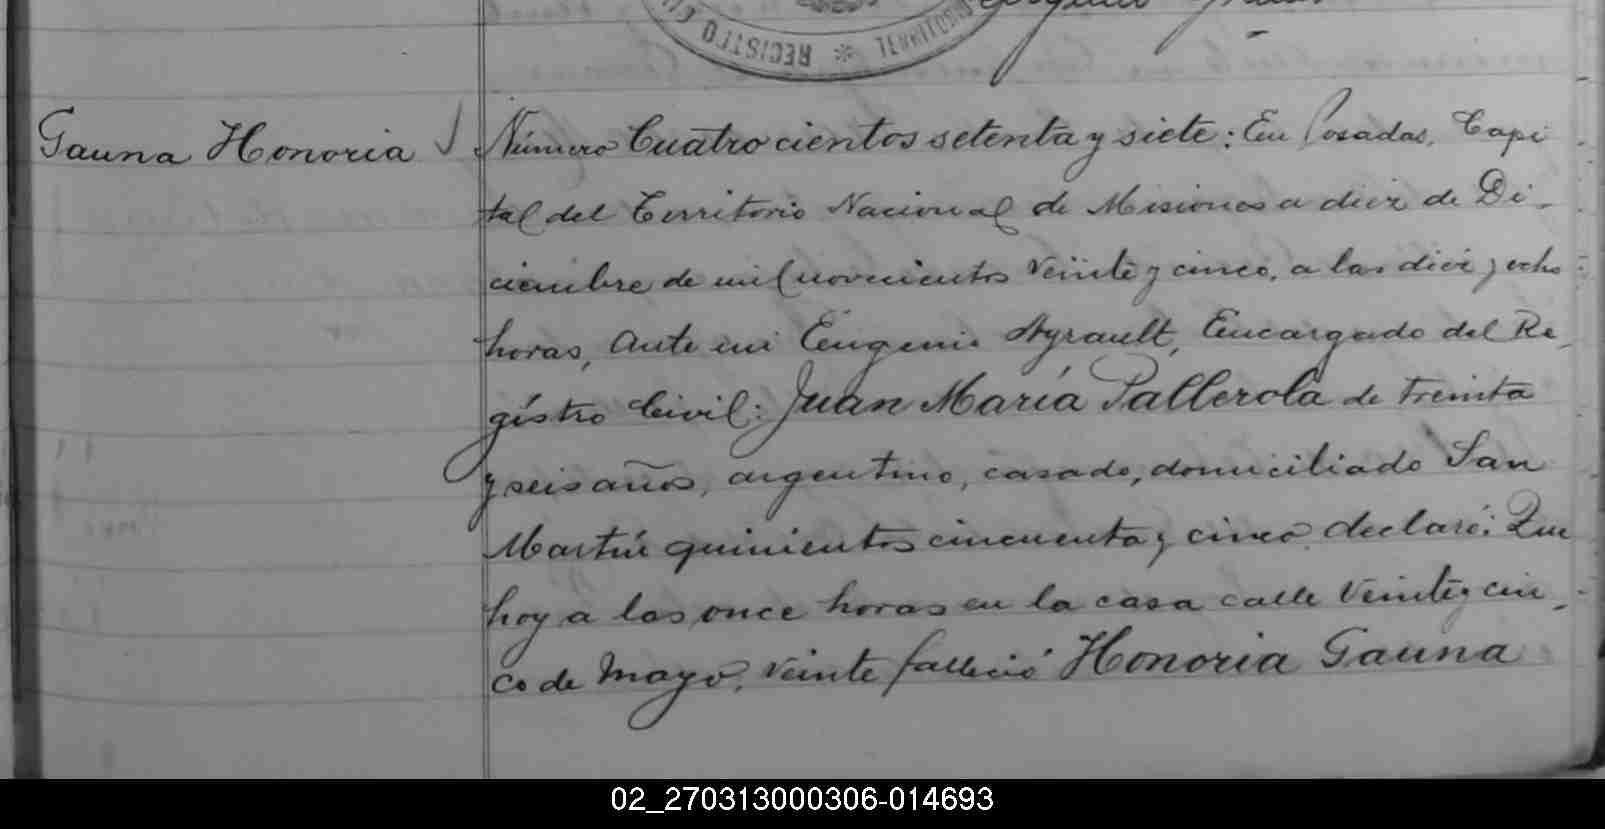 REGISTRO
Gauna Honoria
Número Cuatrocientos setenta y siete: En Posadas, Capi
tal del Territorio Nacional de Misiones a diez de Di-
ciembre de mil novecientos veinte y cinco, a las diez y ocho
horas, Ante mi Eugenio Ayrault, Encargado del Re-
gistro Civil: Juan María Pallerola de treinta
y seis años, argentino, casado, domiciliado San
Martín quinientos cincuenta y cinco declaró: Que
hoy a las once horas en la casa calle Veinte y cin-
co de Mayo, veinte falleció Honoria Gauna
02_270313000306-014693